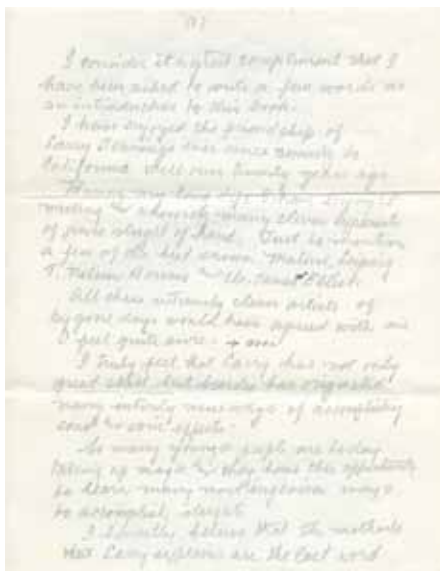 I consider it a great compliment that I
have been asked to write a few words as
an introduction to this book.
I have enjoyed the friendship of
Larry Jennings ever since coming to
California well over twenty years ago.
During my long life I have enjoyed
meeting many clever
of pure sleight of hand. Just to mention
a few of the best known Malini, Leipzig
T. Nelson Downs Dr. Elliott.
All these extremely clever artists of
bygone days would have agreed with me
I feel quite sure.
I truly feel that Larry has not only
great skill but besides has originated
many entirely new ways of accomplishing
effects.
So many young people are today
taking up magic they have the opportunity
to learn many ways
to accomplish
I honestly believe that the methods
that Larry are the last word